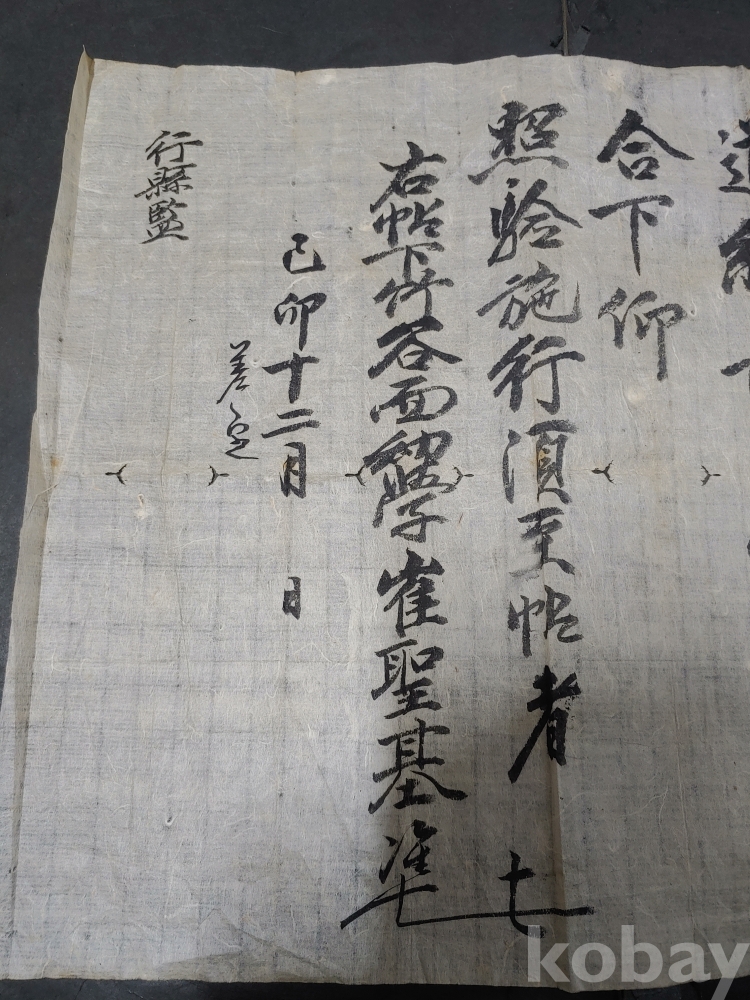 合下仰
照驗施行須至帖者
右帖下竹谷面幼學崔聖基準
己卯十二月 日
差定
行縣監
kobay